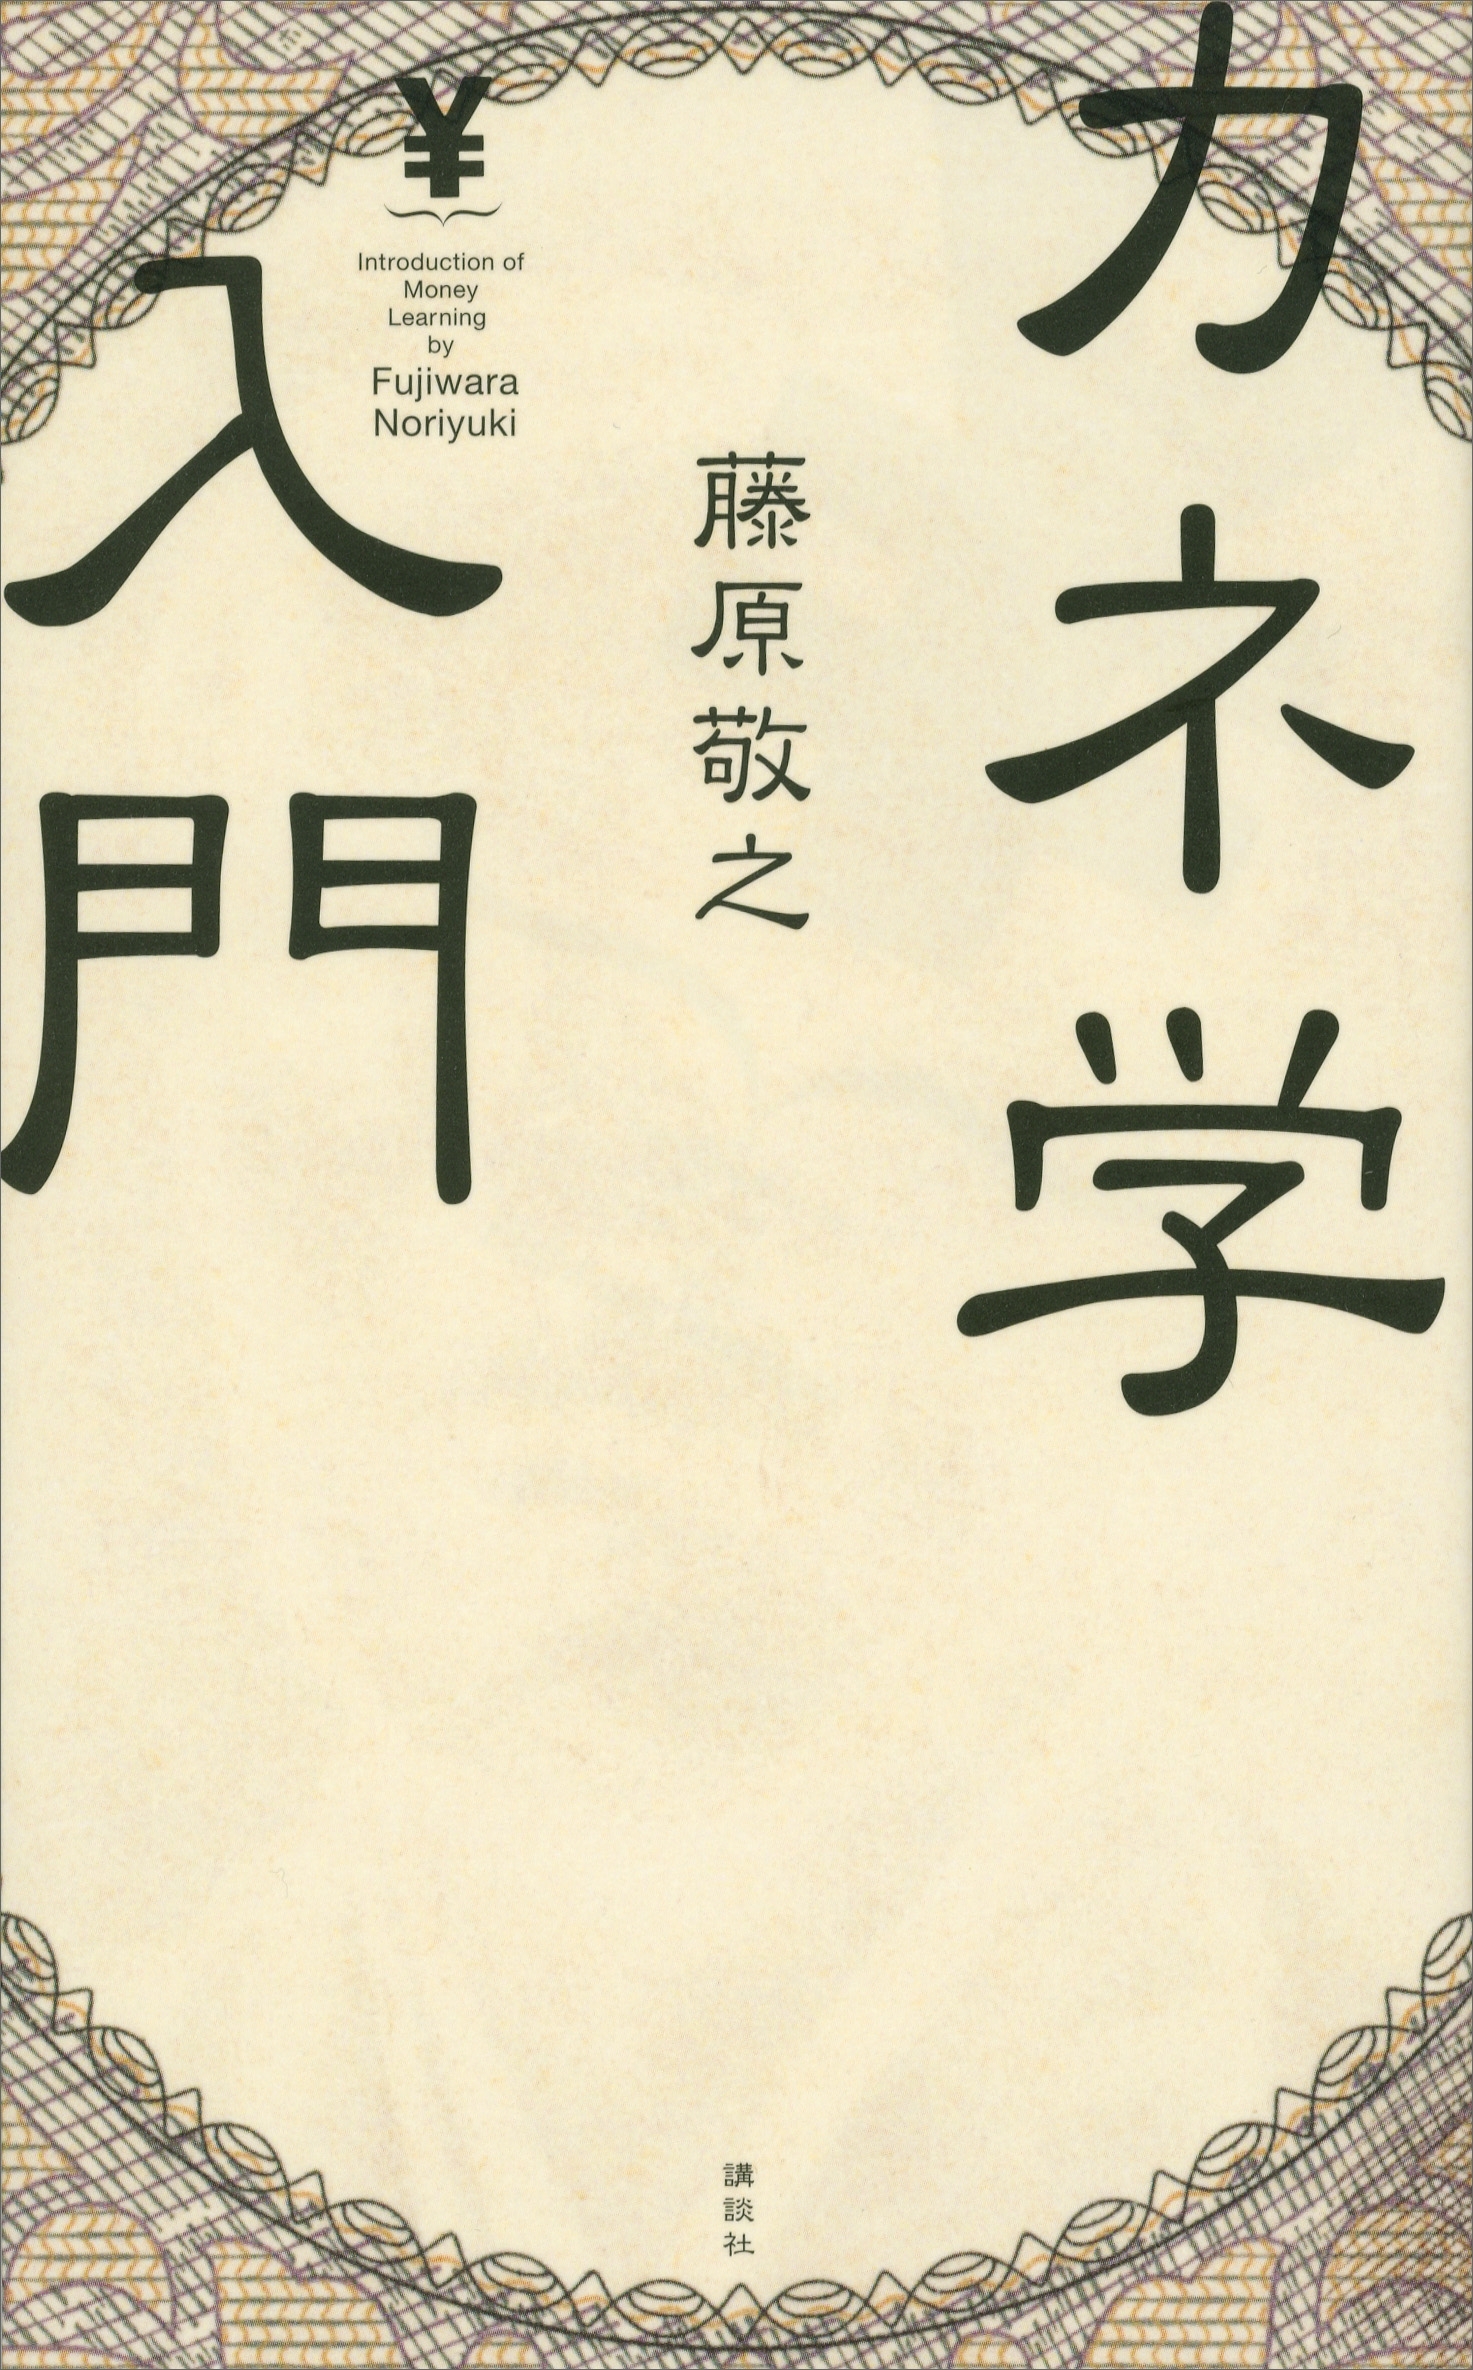 カネ学
入門
¥
Introduction of
Money
Learning
by
Fujiwara
Noriyuki
藤原敬之
講談社